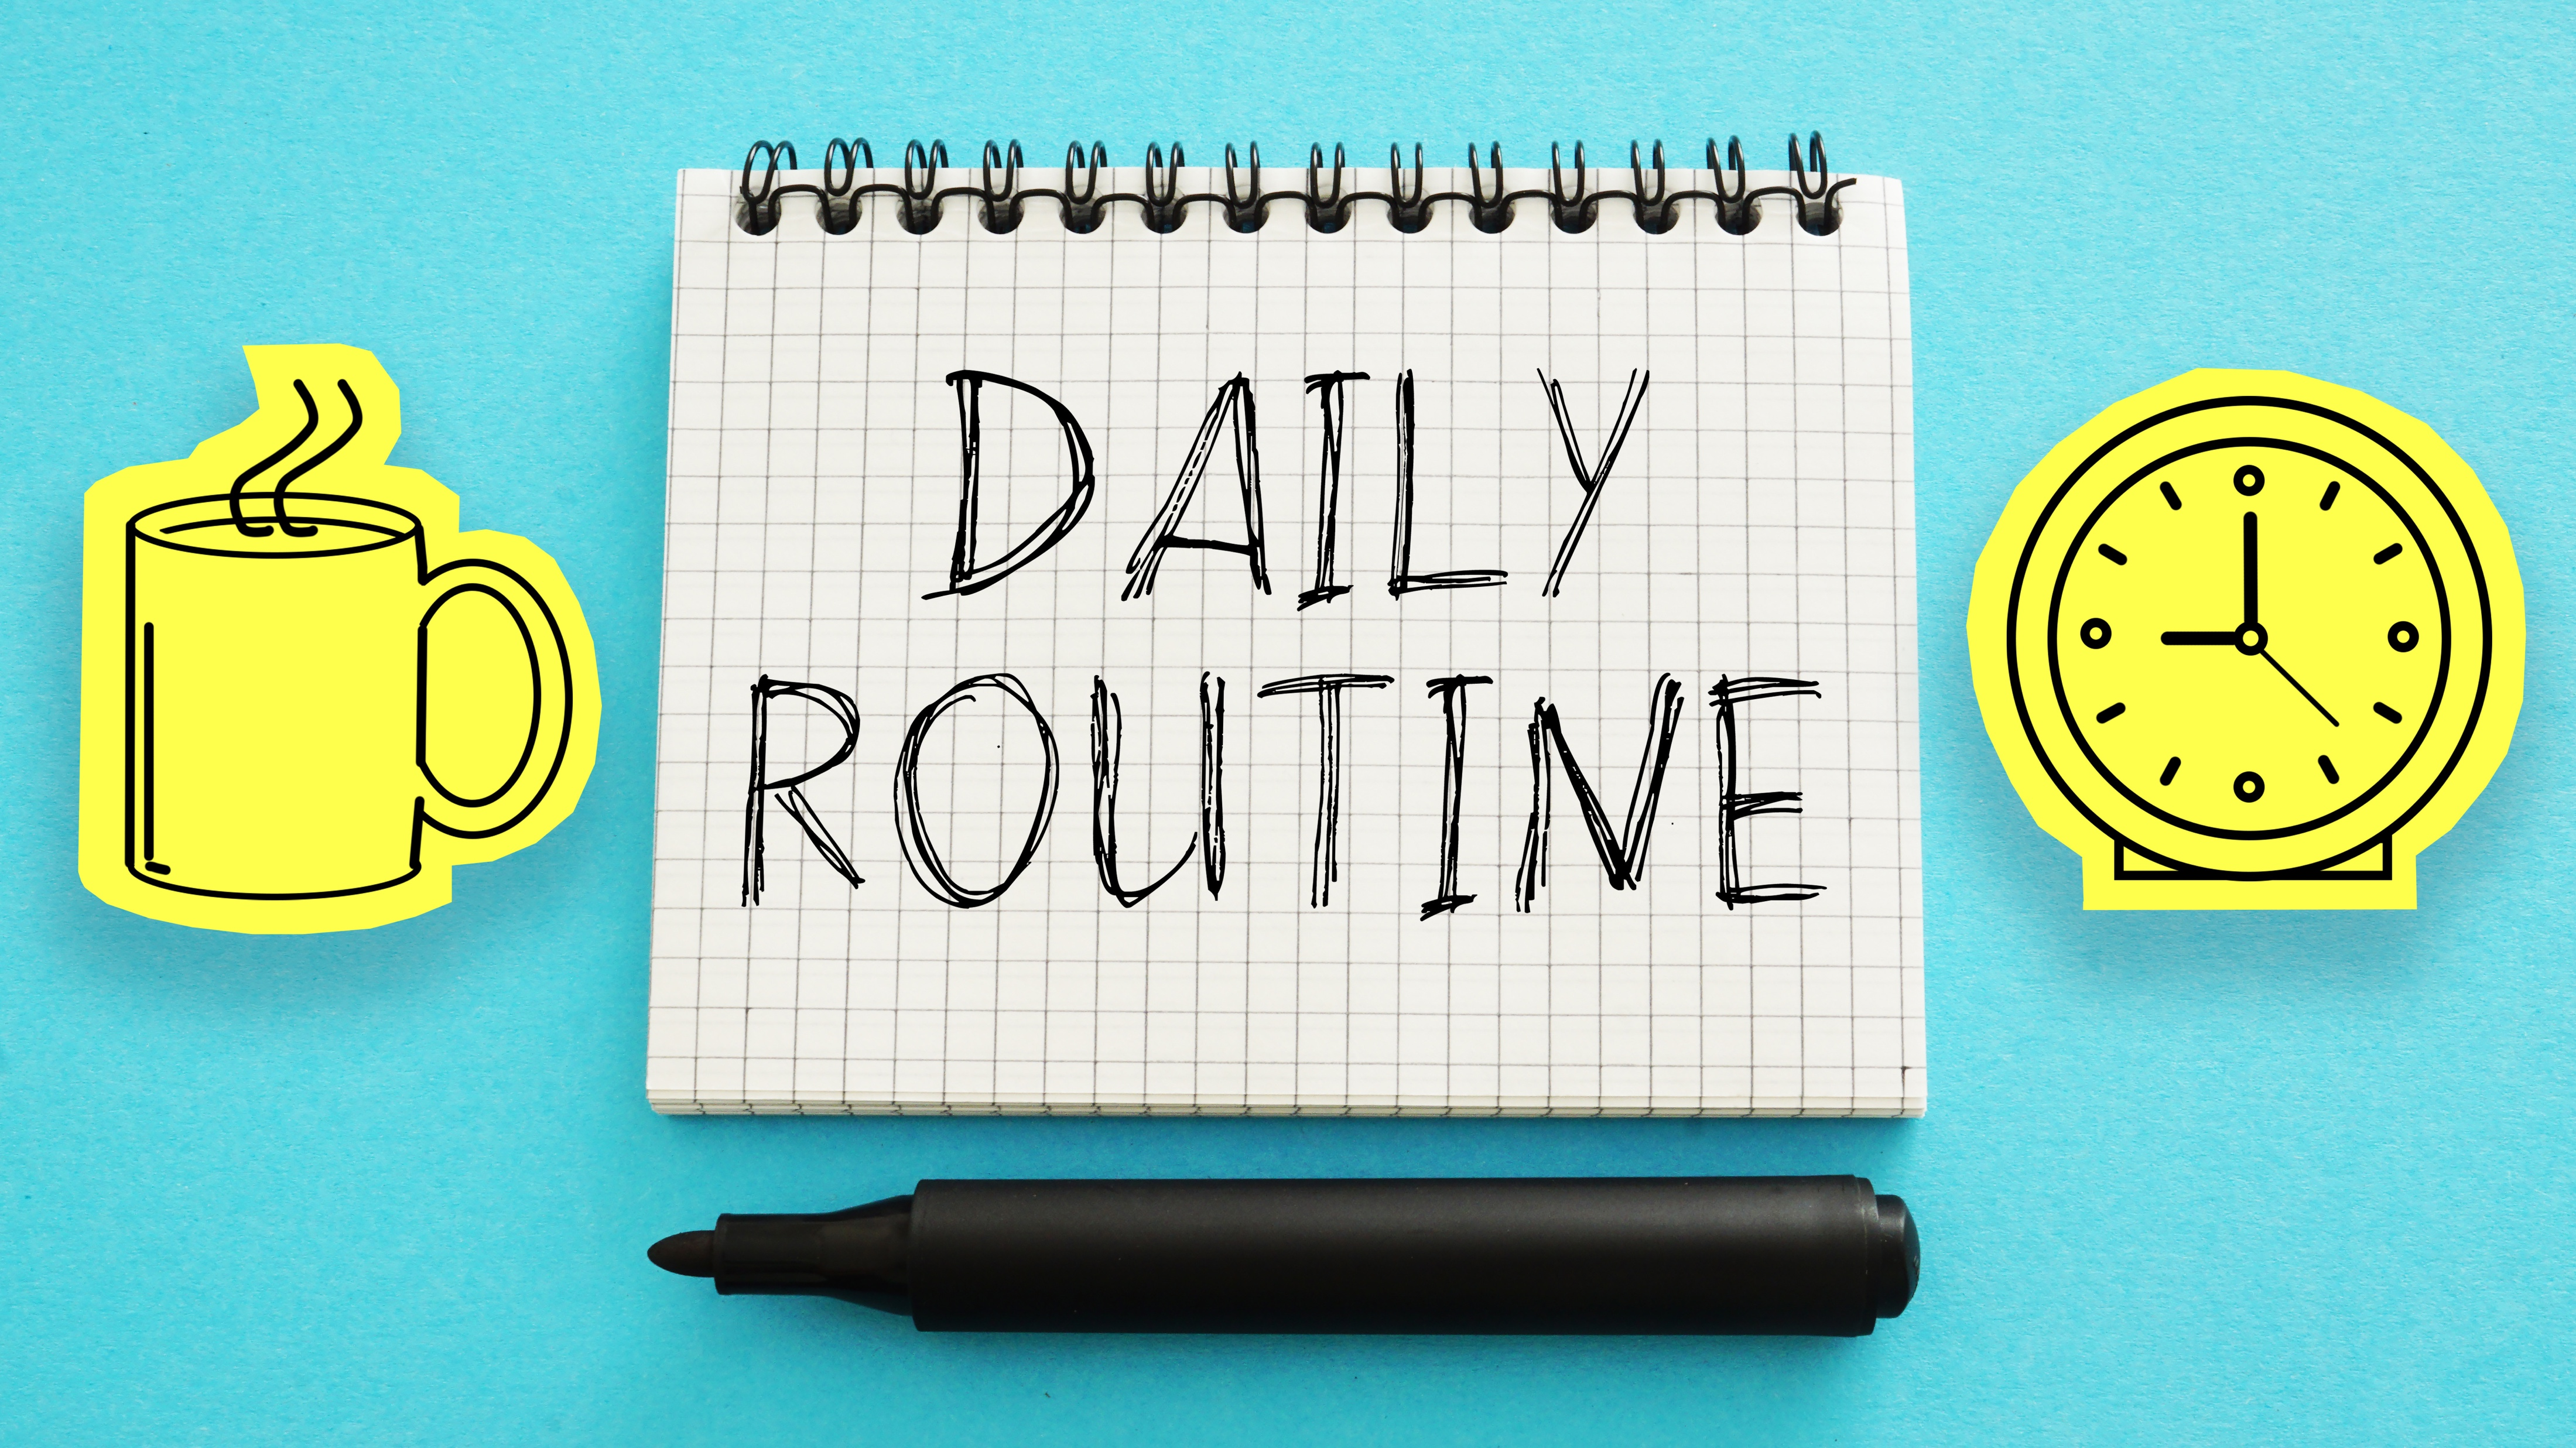 DAILY
ROUTINE